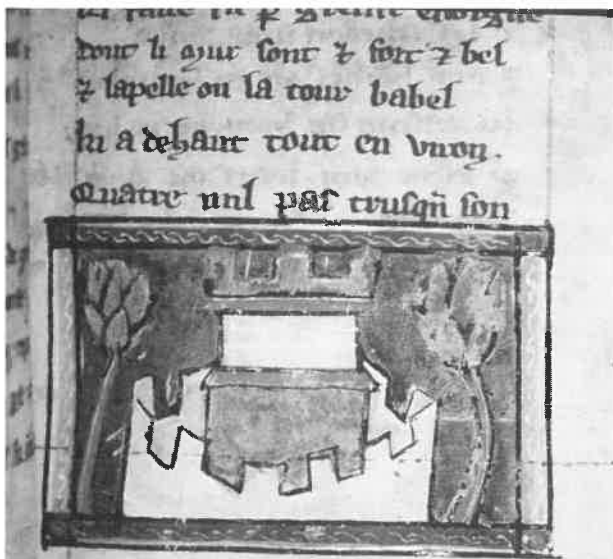 dont li mur sont & fort & bel
& lapelle on la tour babel
ki a dehaut tout en viron.
Quatre mil pas trusqu son